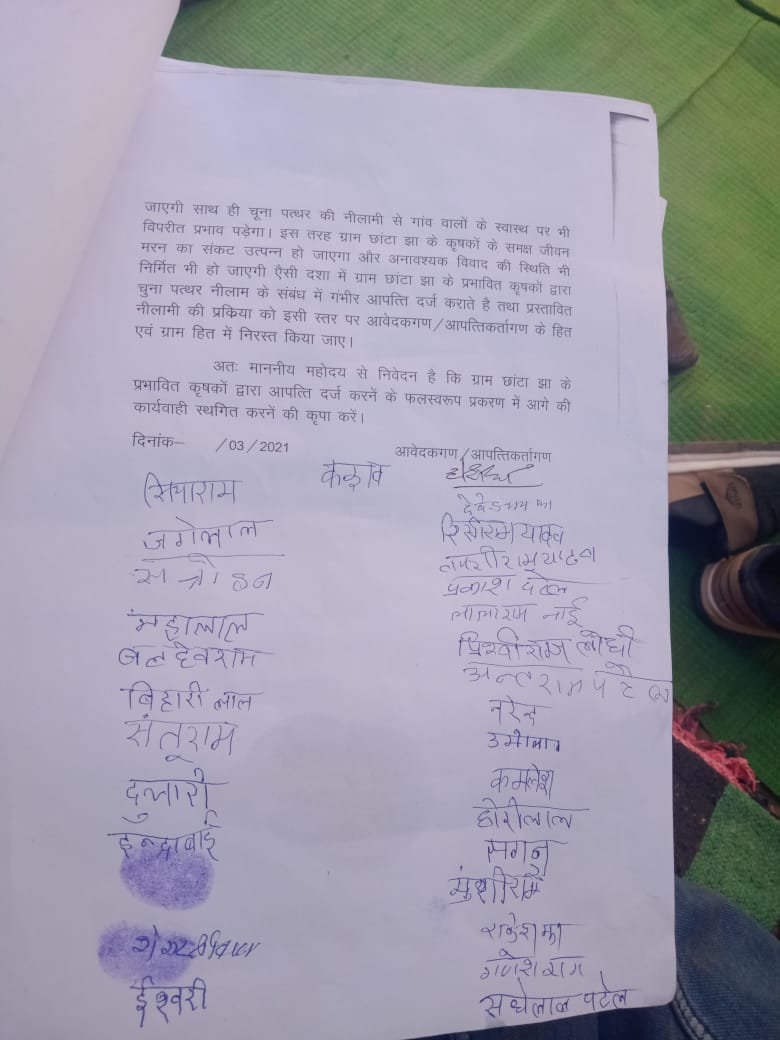 जाएगी साथ ही चूना पत्थर की नीलामी से गांव वालों के स्वास्थ पर भी
विपरीत प्रभाव पड़ेगा। इस तरह ग्राम छांटा झा के कृषकों के समक्ष जीवन
मरन का संकट उत्पन्न हो जाएगा और अनावश्यक विवाद की स्थिति भी
निर्मित भी हो जाएगी ऐसी दशा में ग्राम छांटा झा के प्रभावित कृषकों द्वारा
चुना पत्थर नीलाम के संबंध में गंभीर आपत्ति दर्ज कराते है तथा प्रस्तावित
नीलामी की प्रकिया को इसी स्तर पर आवेदकगण/आपत्तिकर्तागण के हित
एवं ग्राम हित में निरस्त किया जाए।
अतः माननीय महोदय से निवेदन है कि ग्राम छांटा झा के
प्रभावित कृषकों द्वारा आपत्ति दर्ज करनें के फलस्वरूप प्रकरण में आगे की
कार्यवाही स्थगित करनें की कृपा करें।
दिनांक– /03/2021
आवेदकगण/आपत्तिकर्तागण
सियाराम
जगेलाल
मंहालाल
बलदेवराम
बिहारी लाल
संतूराम
दुलारी
इन्द्राबाई
ईश्वरी
यादव
प्रकाश पटेल
लालाराम नाई
लोधी
नरेन्द्र
कमलेश
होरीलाल
सगनु
मुंशीराम
गणेश राम
सधेलाल पटेल